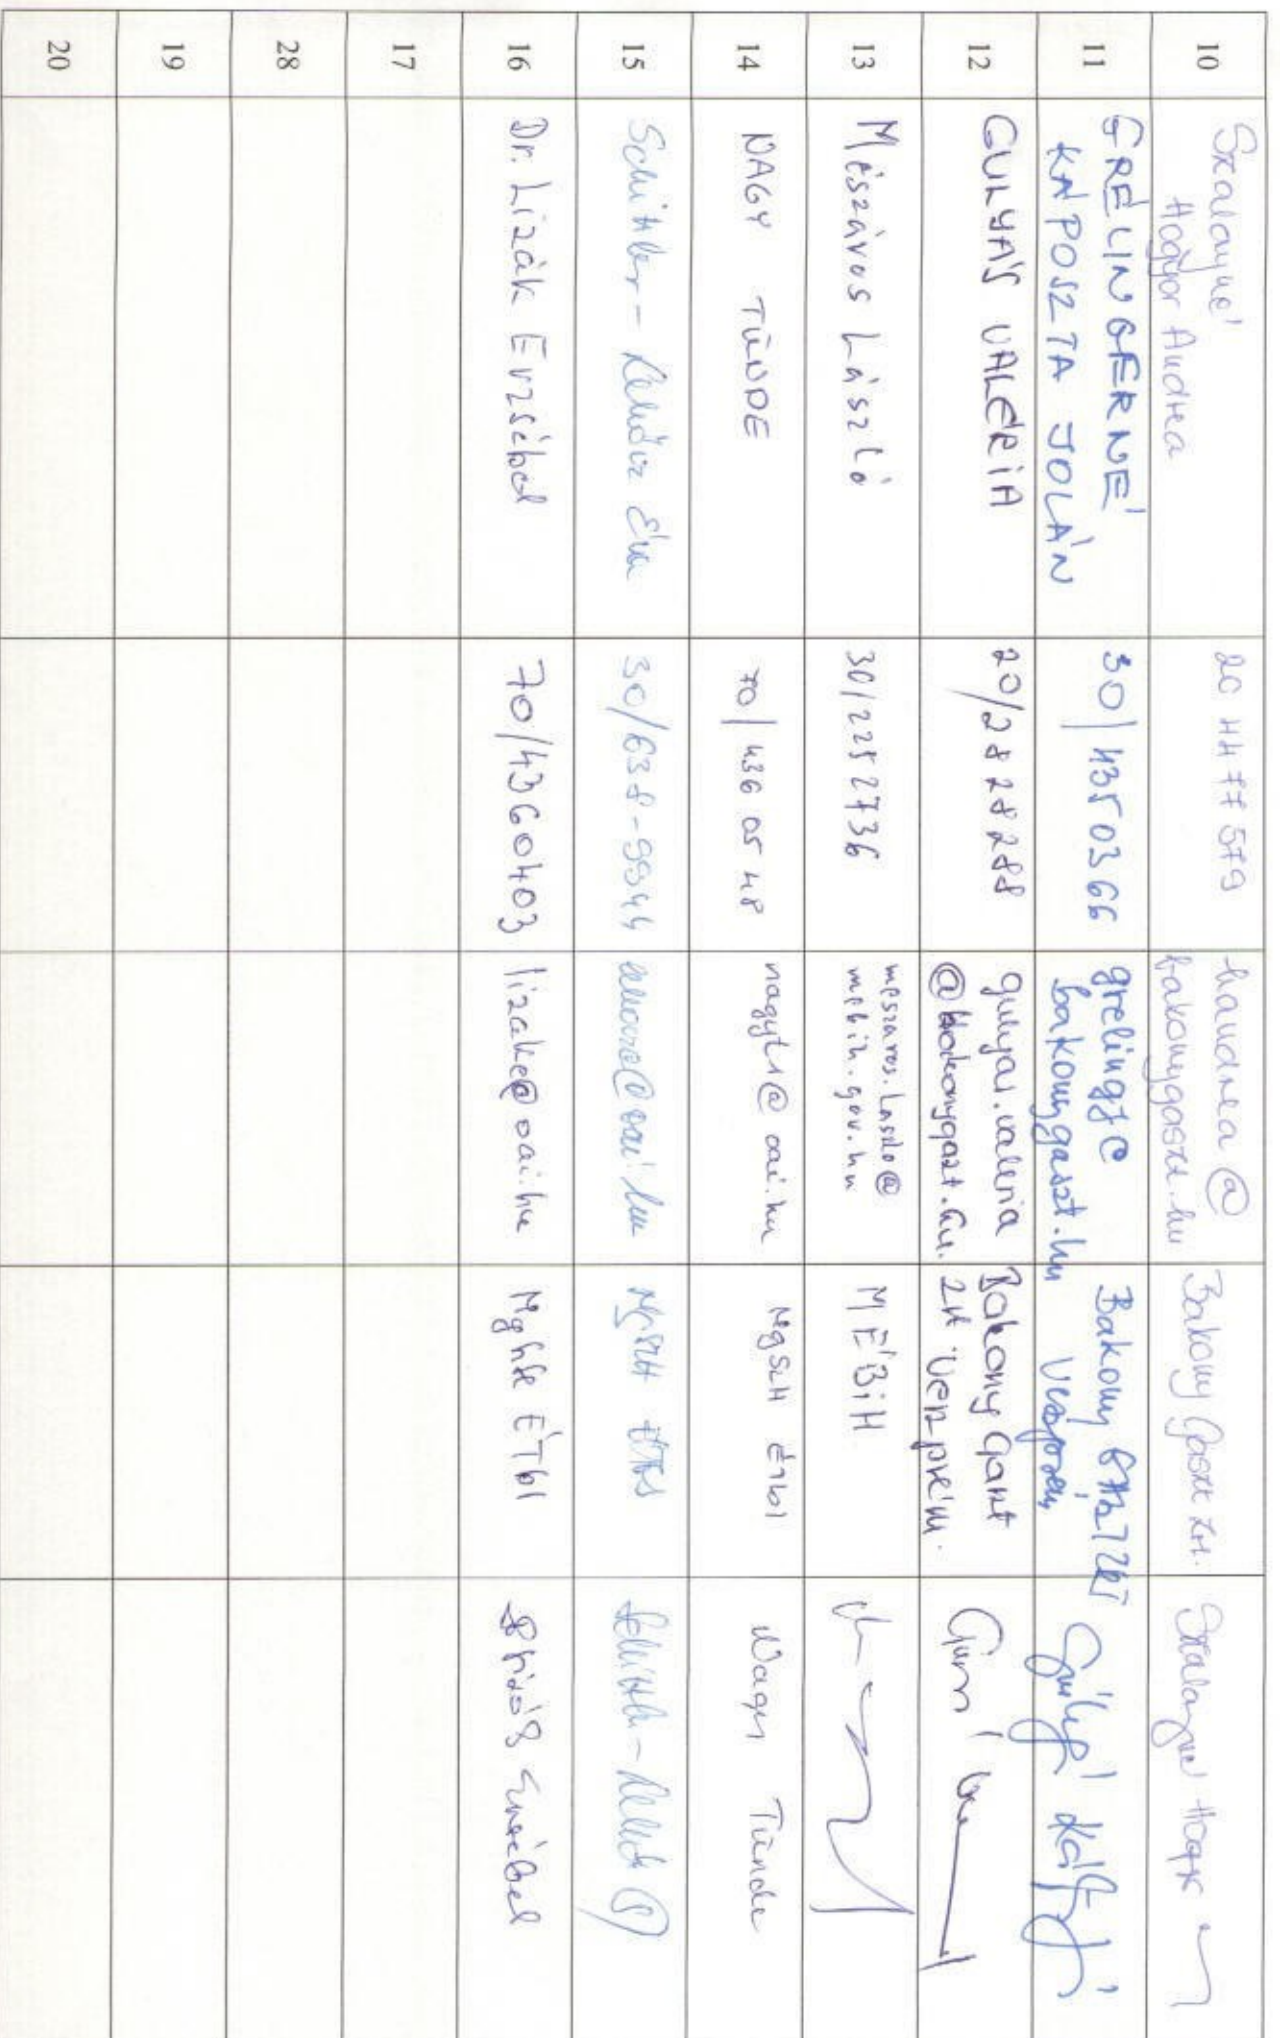 10
Szalayné
Hoógyor Andrea
20 44 77 579
handrea@
bakonygaszt.hu
Bakony Gaszt Zrt.
11
GRELINGERNÉ
KÁPOSZTA JOLÁN
30/4350366
bakonygaszt.hu
Bakony
Veszprém
12
GULYÁS VALÉRIA
20/2828288
gulyas.valeria
@bakonygaszt.hu.
Bakony Gaszt
Zrt Veszprém.
13
Mészáros László
30/2252736
meszaros.laszlo@
mebih.gov.hu
MÉBiH
14
NAGY TÜNDE
70/436 05 48
nagyt@oai.hu
MgSzH ÉTbI
Nagy Tünde
15
Éva
30/638-9944
MgSzH ÉTbI
16
Dr. Lizák Erzsébet
70/4360403
lizake@oai.hu
ÉTbI
Erzsébet
17
28
19
20